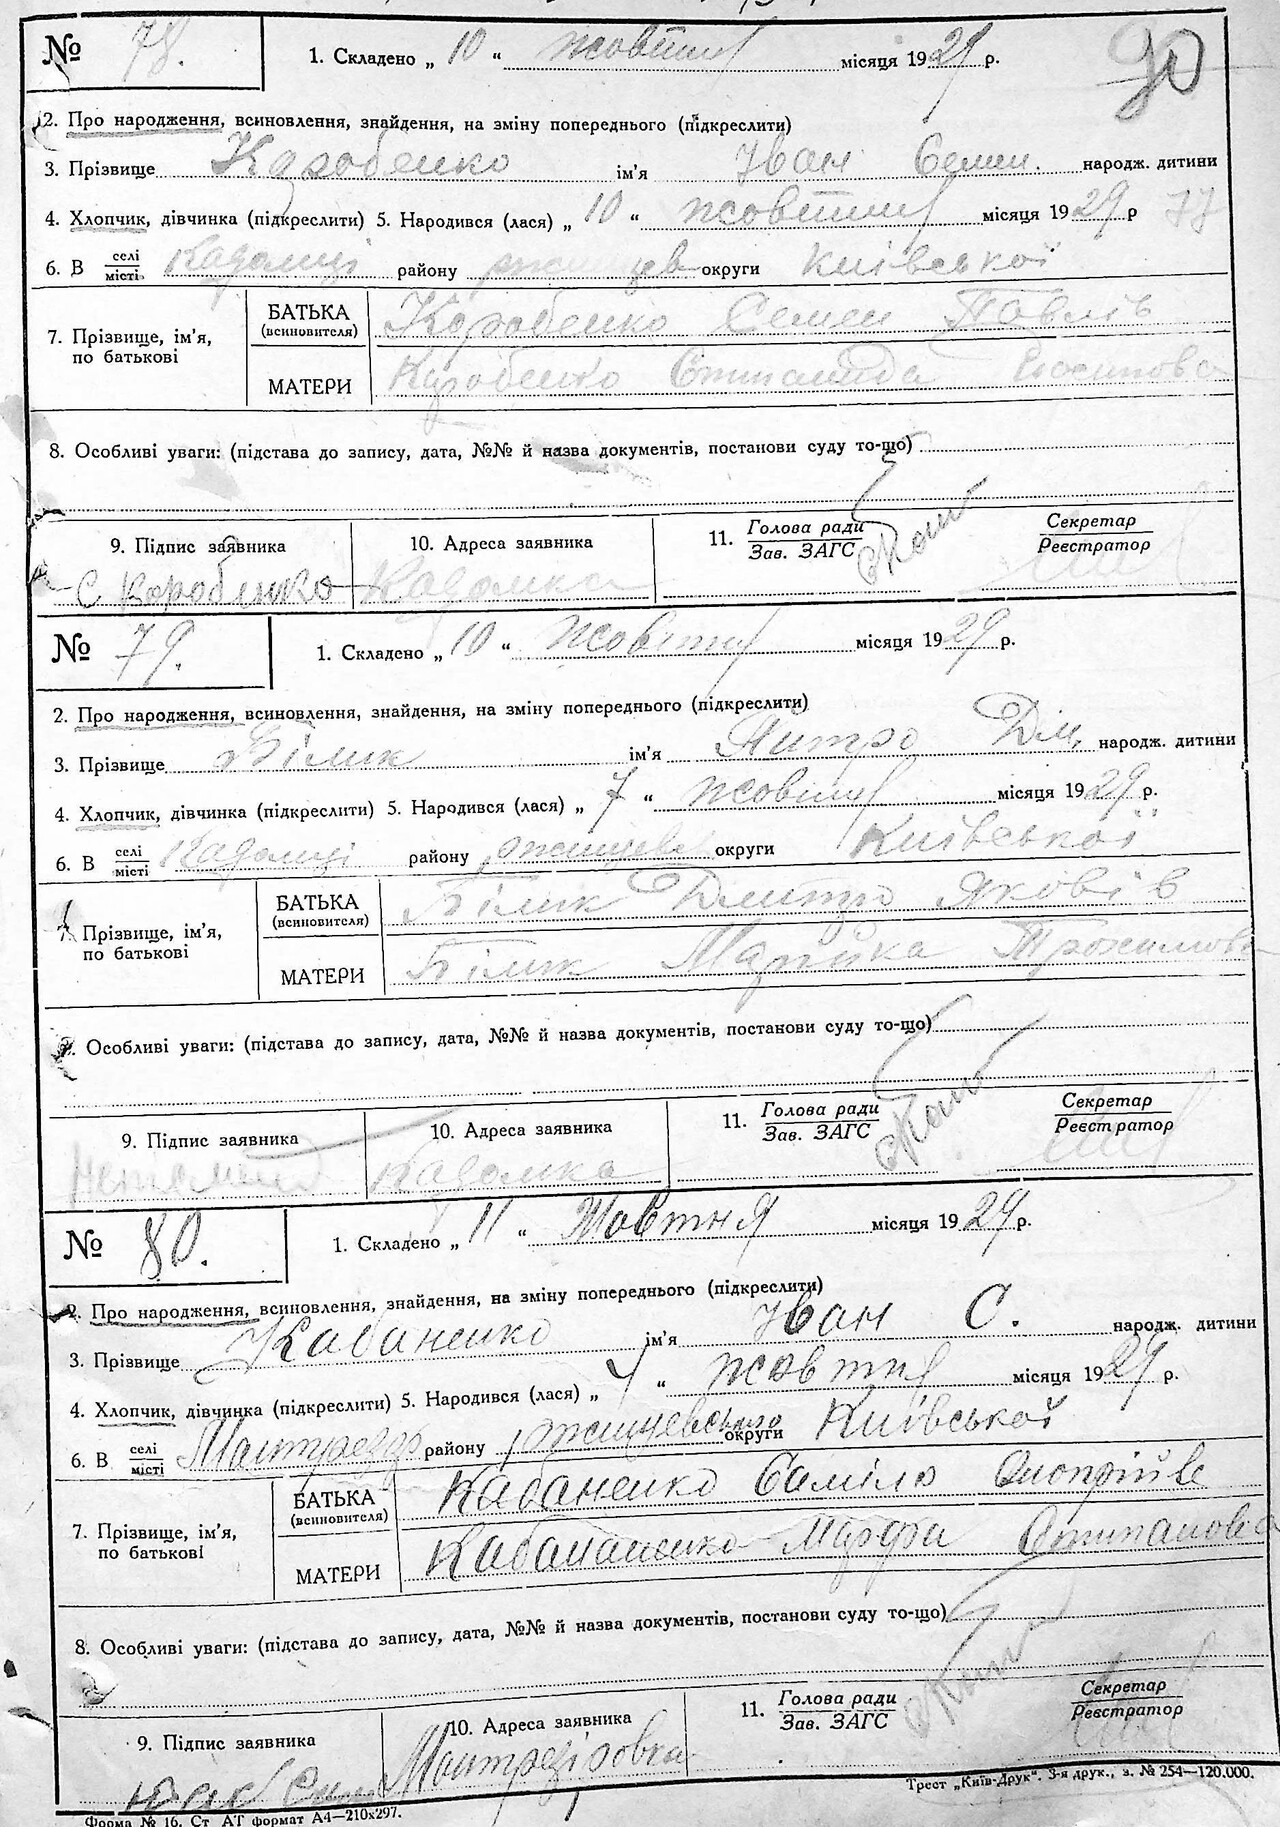 № 78. 1. Складено „ 10 “ жовтня місяця 1929 р. 90
2. Про народження, всиновлення, знайдення, на зміну попереднього (підкреслити)
3. Прізвище Коробенко ім'я Іван Семен. народж. дитини
4. Хлопчик, дівчинка (підкреслити) 5. Народився (лася) „ 10 “ жовтня місяця 1929 р 77
6. В селі місті Кадомці району округи Київської
7. Прізвище, ім'я, по батькові БАТЬКА (всиновителя) Коробенко Семен Павлів
МАТЕРИ Коробенко
8. Особливі уваги: (підстава до запису, дата, №№ й назва документів, постанови суду то-що)
9. Підпис заявника 10. Адреса заявника 11. Голова ради Зав. ЗАГС Секретар Реєстратор
С Коробенко Кадомка
№ 79. 1. Складено „ 10 “ жовтня місяця 1929 р.
2. Про народження, всиновлення, знайдення, на зміну попереднього (підкреслити)
3. Прізвище Білик ім'я Дм. народж. дитини
4. Хлопчик, дівчинка (підкреслити) 5. Народився (лася) „ 7 “ жовтня місяця 1929 р.
6. В селі місті Кадомці району округи Київської
7. Прізвище, ім'я, по батькові БАТЬКА (всиновителя) Білик Дмитро Яковів
МАТЕРИ Білик Марійка Трохимова
8. Особливі уваги: (підстава до запису, дата, №№ й назва документів, постанови суду то-що)
9. Підпис заявника 10. Адреса заявника 11. Голова ради Зав. ЗАГС Секретар Реєстратор
Кадомка
№ 80. 1. Складено „ 11 “ Жовтня місяця 1929 р.
2. Про народження, всиновлення, знайдення, на зміну попереднього (підкреслити)
3. Прізвище Кабаненко ім'я Іван С. народж. дитини
4. Хлопчик, дівчинка (підкреслити) 5. Народився (лася) „ “ жовтня місяця 1929 р.
6. В селі місті району ржищевського округи Київської
7. Прізвище, ім'я, по батькові БАТЬКА (всиновителя) Кабаненко
МАТЕРИ Марфа Степанова
8. Особливі уваги: (підстава до запису, дата, №№ й назва документів, постанови суду то-що)
9. Підпис заявника 10. Адреса заявника 11. Голова ради Зав. ЗАГС Секретар Реєстратор
Форма № 16. Ст АТ формат А4—210х297. Трест „Київ-Друк“. 3-я друк., з. № 254—120.000.